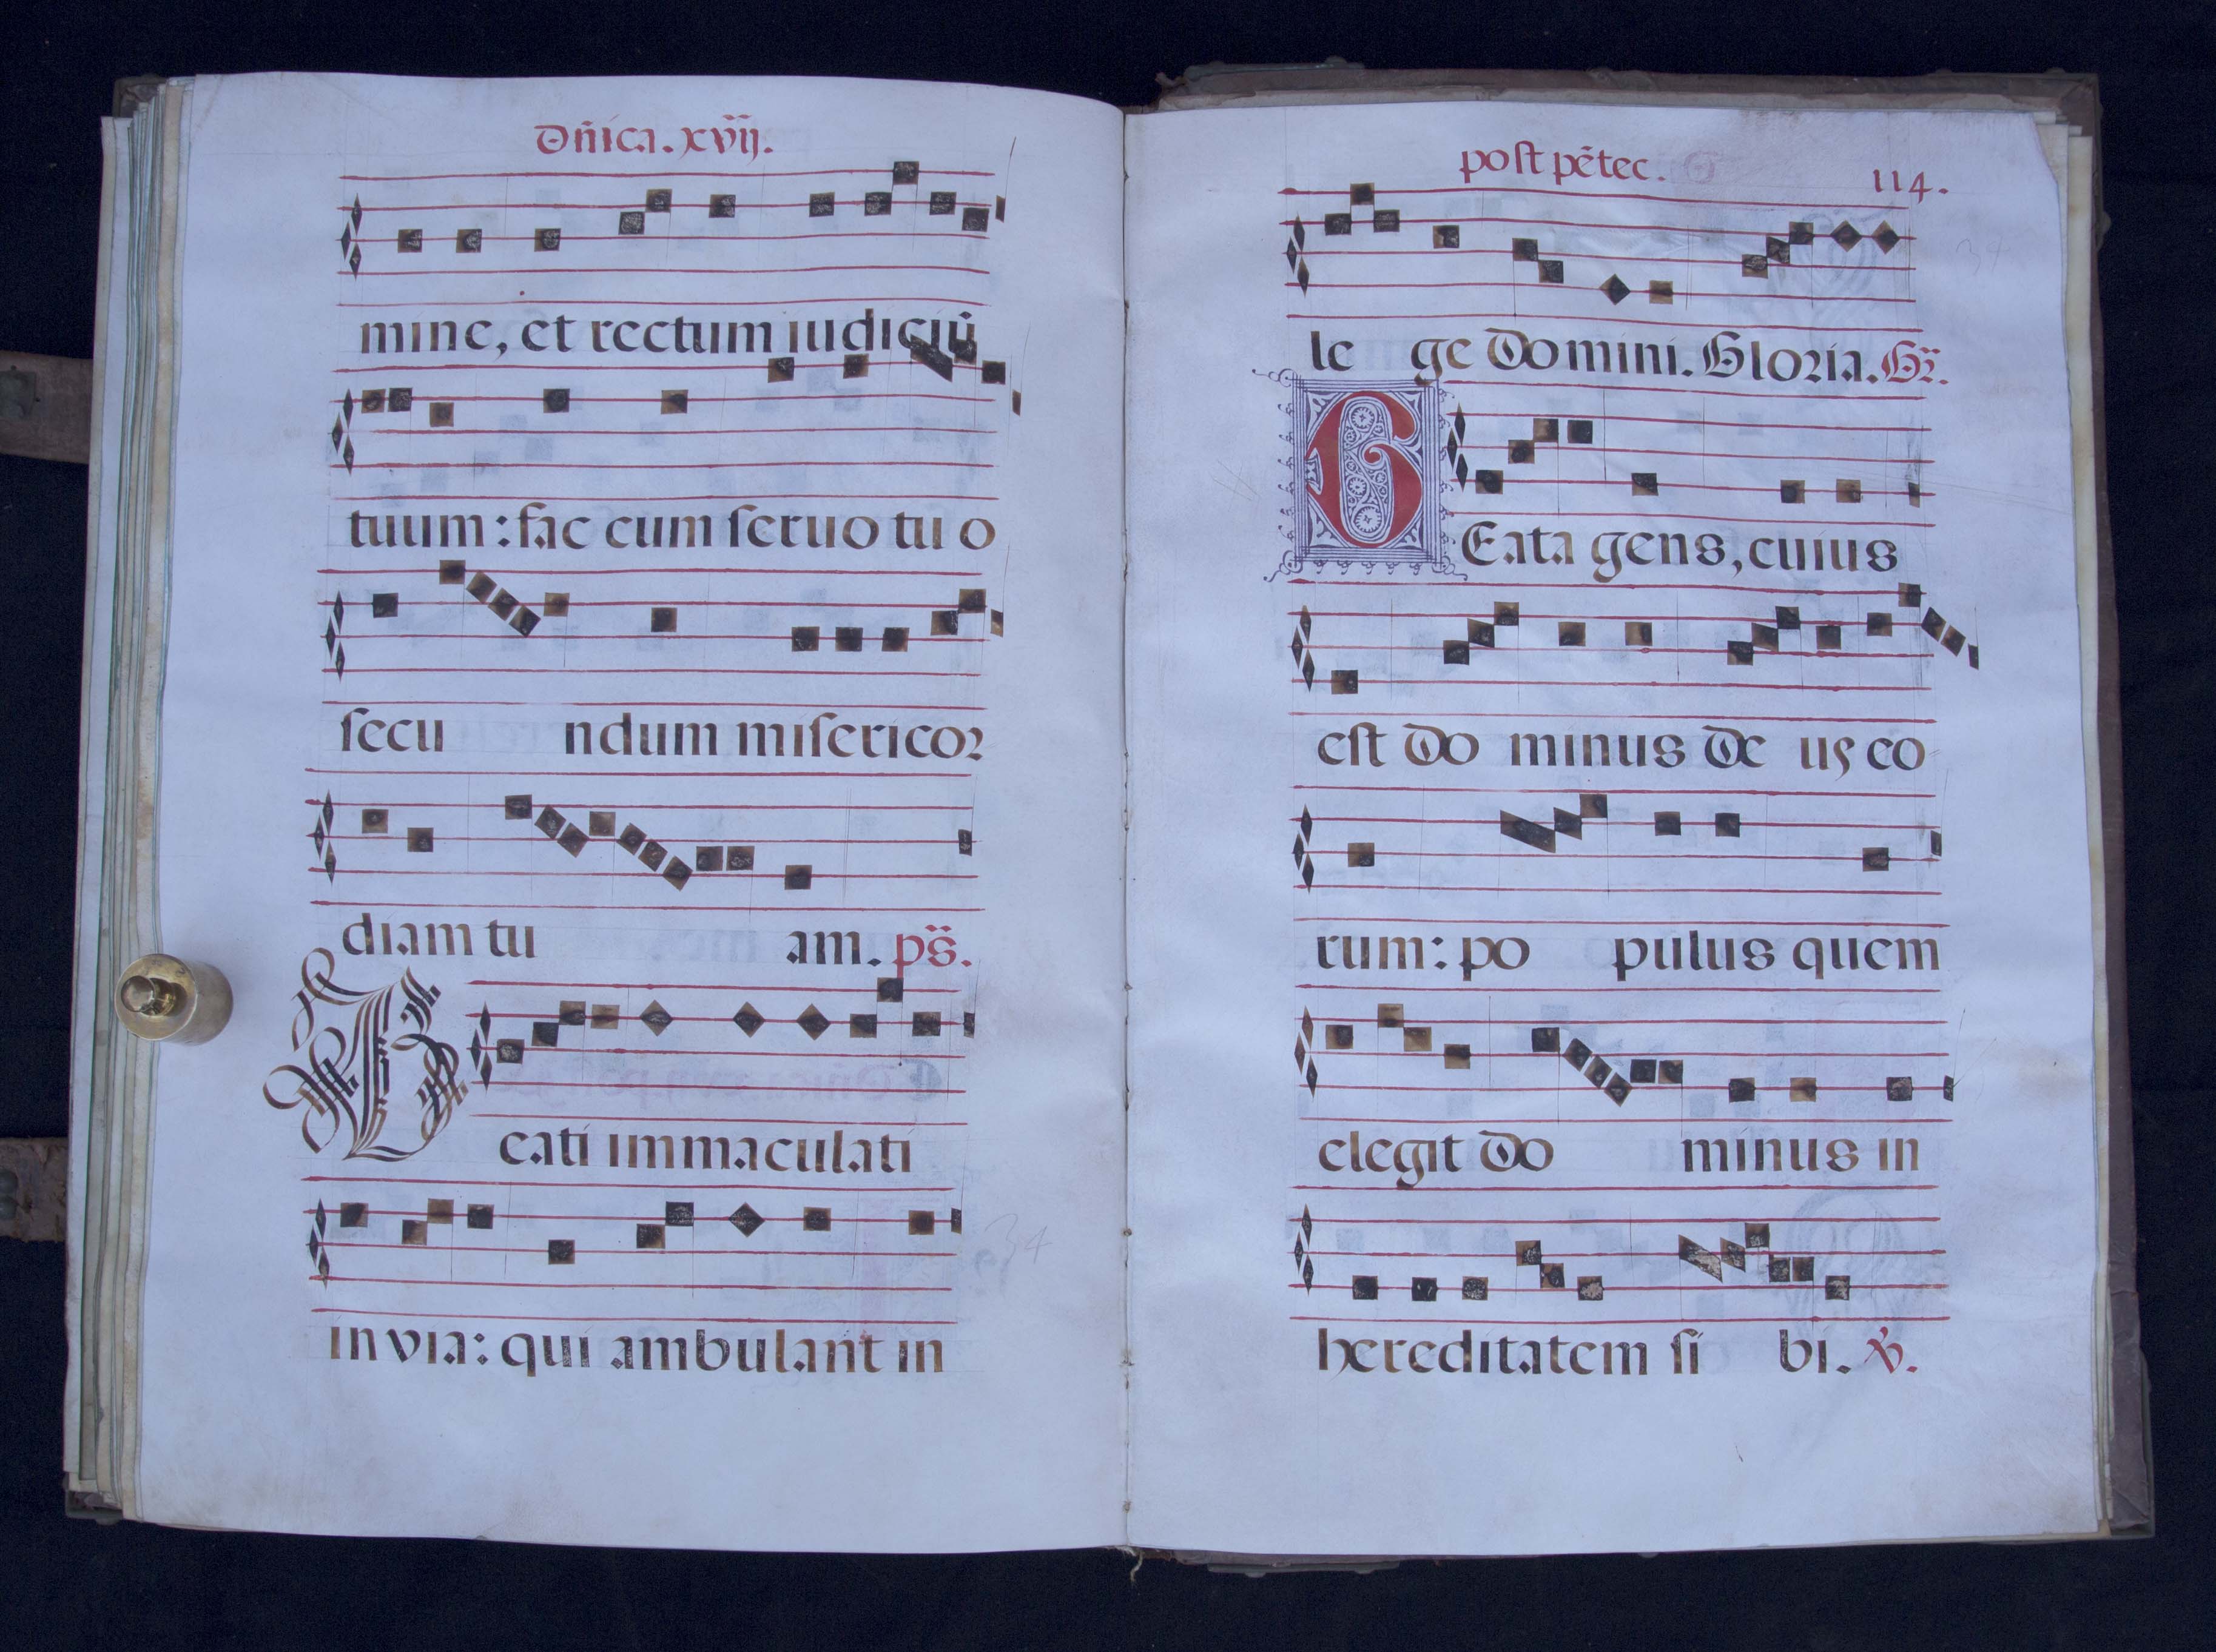 Dn̄ica. xvij.
mine, et rectum iudiciū
tuum: fac cum seruo tu o
secu ndum misericor
diam tu am. ps̄.
B
eati immaculati
in via: qui ambulant in
post pētec.
114.
le ge Domini. Gloria. Gr̄.
B
Eata gens, cuius
est Do minus De us eo
rum: po pulus quem
elegit Do minus in
hereditatem si bi. ℣.